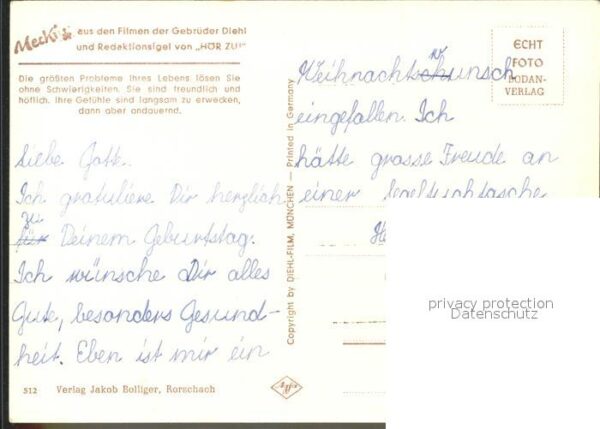 Mecki aus den Filmen der Gebrüder Diehl
und Redaktionsigel von „HÖR ZU!"
Die größten Probleme Ihres Lebens lösen Sie
ohne Schwierigkeiten. Sie sind freundlich und
höflich. Ihre Gefühle sind langsam zu erwecken,
dann aber andauernd.
Liebe Gotte.
Ich gratuliere Dir herzlich
zu
für Deinem Geburtstag.
Ich wünsche Dir alles
Gute, besonders Gesund-
heit. Eben ist mir ein
512 Verlag Jakob Bolliger, Rorschach
Copyright by DIEHL-FILM, MÜNCHEN — Printed in Germany
Agfa
ECHT
FOTO
BODAN-
VERLAG
w
Weihnachtschunsch
eingefallen. Ich
hätte grosse Freude an
einer
privacy protection
Datenschutz